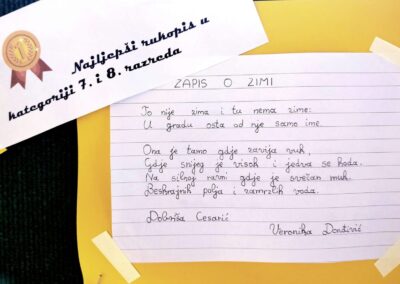 Najljepši rukopis u
kategoriji 7. i 8. razreda
ZAPIS O ZIMI
To nije zima i tu nema zime:
U gradu osta od nje samo ime.
Ona je tamo gdje zavija vuk,
Gdje snijeg je visok i jedva se hoda.
Na silnoj ravni gdje je svečan muk.
Beskrajnih polja i zamrzlih voda.
Dobriša Cesarić
Veronika